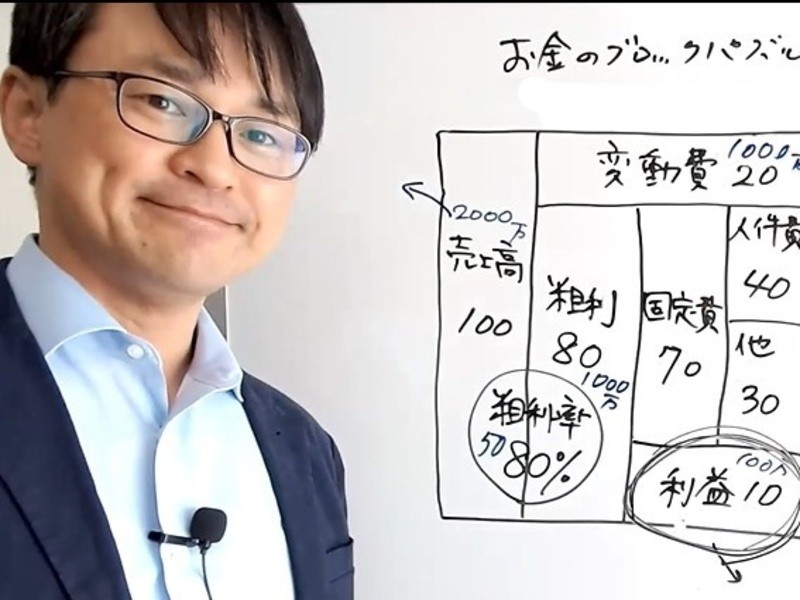 お金のブロックパズル
変動費 20
1000万
2000万
売上高
100
粗利
80
1000万
粗利率
50
80%
固定費
70
人件費
40
他
30
利益 10
100万